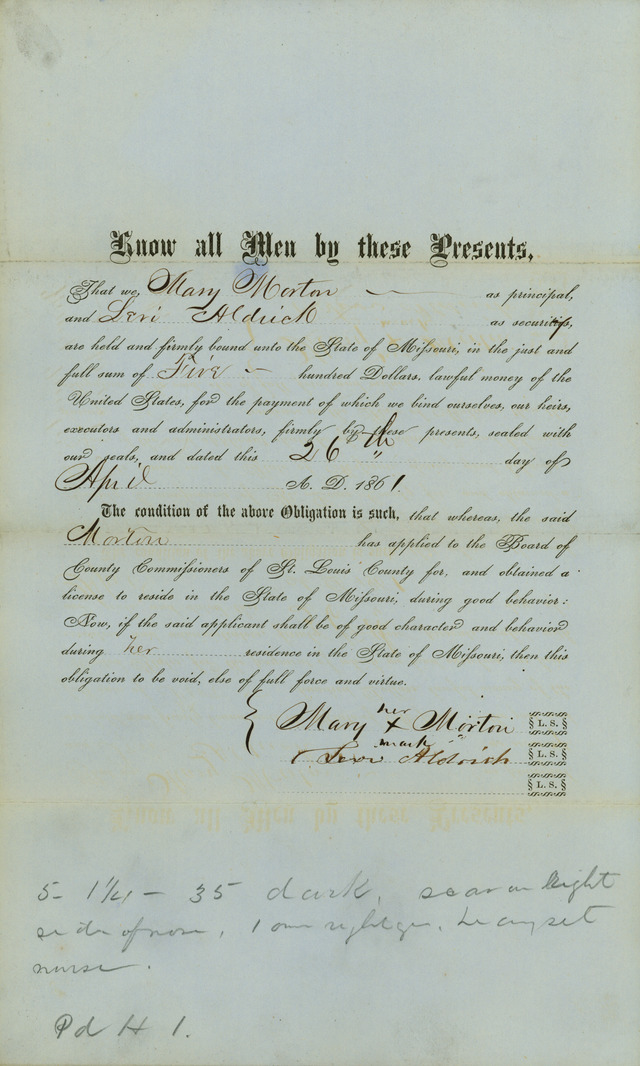 Know all Men by these Presents,
That we, Mary Morton — as principal,
and Levi Aldrich as securities,
are held and firmly bound unto the State of Missouri, in the just and
full sum of Five — hundred Dollars, lawful money of the
United States, for the payment of which we bind ourselves, our heirs,
executors and administrators, firmly by these presents, sealed with
our seals, and dated this 26th day of
April A. D. 1861.
The condition of the above Obligation is such, that whereas, the said
Morton has applied to the Board of
County Commissioners of St. Louis County for, and obtained a
license to reside in the State of Missouri, during good behavior:
Now, if the said applicant shall be of good character and behavior
during her residence in the State of Missouri, then this
obligation to be void, else of full force and virtue.
her
Mary x Morton L. S.
mark
Levi Aldrich L. S.
L. S.
5- 1¼ - 35 dark, scar on Right
side of nose, 1 over right , heavyset
nurse.
Pd H 1.